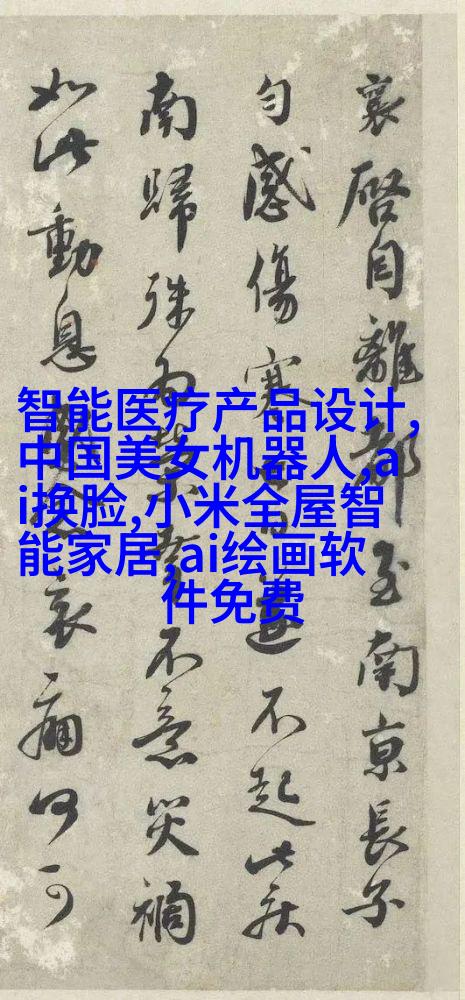 襄啓自離都至南京長子
勻感傷寒遂不起此疾
南歸殊為不意災禍
如此動息哀痛何可
智能医疗产品设计,
中国美女机器人,a
i换脸,小米全屋智
能家居,ai绘画软
件免费